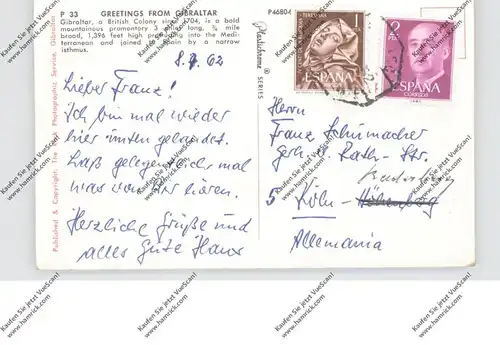 P 33 GREETINGS FROM GIBRALTAR
Gibraltar, a British Colony since 1704, is a bold
mountainous promontory 3 miles long, ¾ mile
broad, 1,396 feet high projecting into the Medi-
terranean and joined to Spain by a narrow
isthmus.
8.7.62
Lieber Franz!
Ich bin mal wieder
hier unten gelandet.
Laß gelegentlich mal
was von Dir hören.
Herzliche Grüße und
alles Gute Hans
Published & Copyright: The Rock Photographic Service, Gibraltar
Plastichrome ® SERIES
P46804
1 PTA
ESPAÑA
2 PTAS
ESPAÑA
CORREOS
Herrn
Franz Schumacher
Rath-Str.
5 Köln - Höhenberg
Allemania
Kaufen Sie jetzt VueScan!
www.hamrick.com